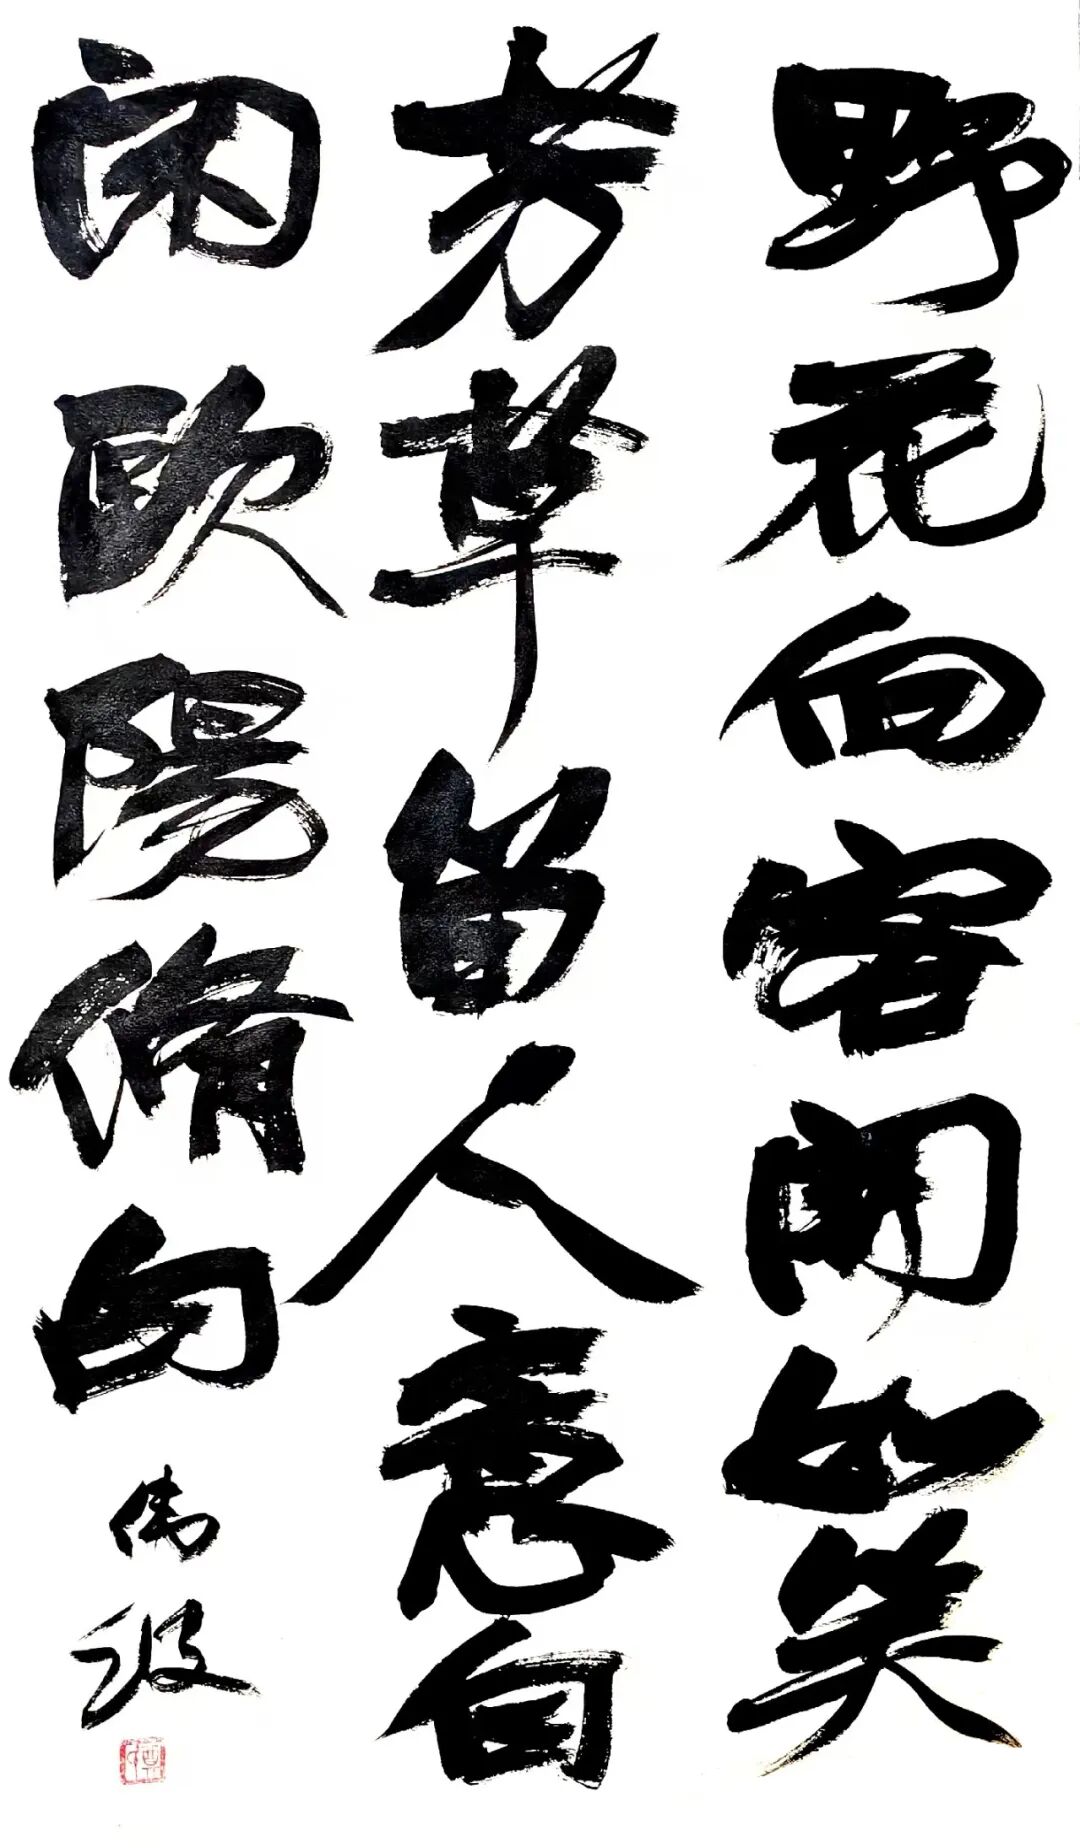 野花向客開如笑
芳草留人意自
闲歐陽脩句
伟波